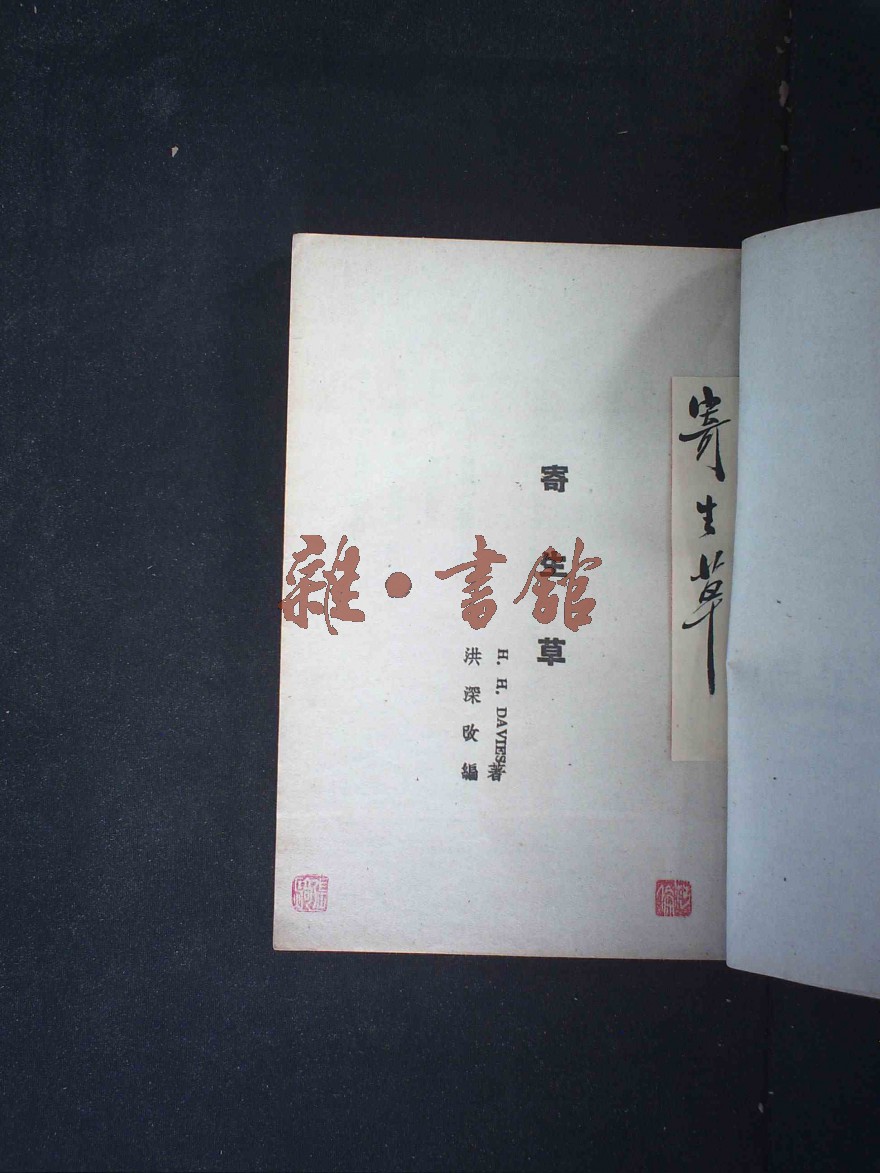 寄生草
寄生草
H. H. DAVIES著
洪深改編
雜·書館